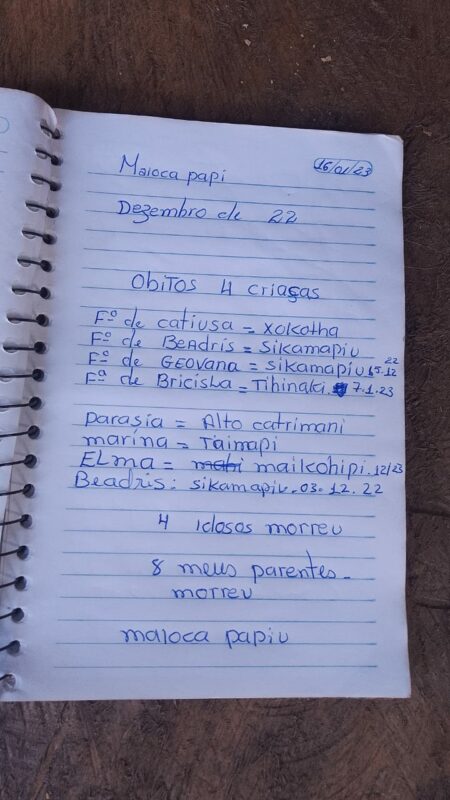 16/01/23
Maioca papi
Dezembro de 22
Obitos 4 criaças
Fº de catiusa = Xokotha
Fº de Beadris = Sikamapiu
Fº de Geovana = sikamapiu 15.12 22
Fª de Briciska = Tihinaki. 7.1.23
parasia = Alto catrimani
marina = Taimapi
Elma = maikohipi. 12/23
Beadris: sikamapiu. 03. 12. 22
4 idosos morreu
8 meus parentes
morreu
maioca papiu